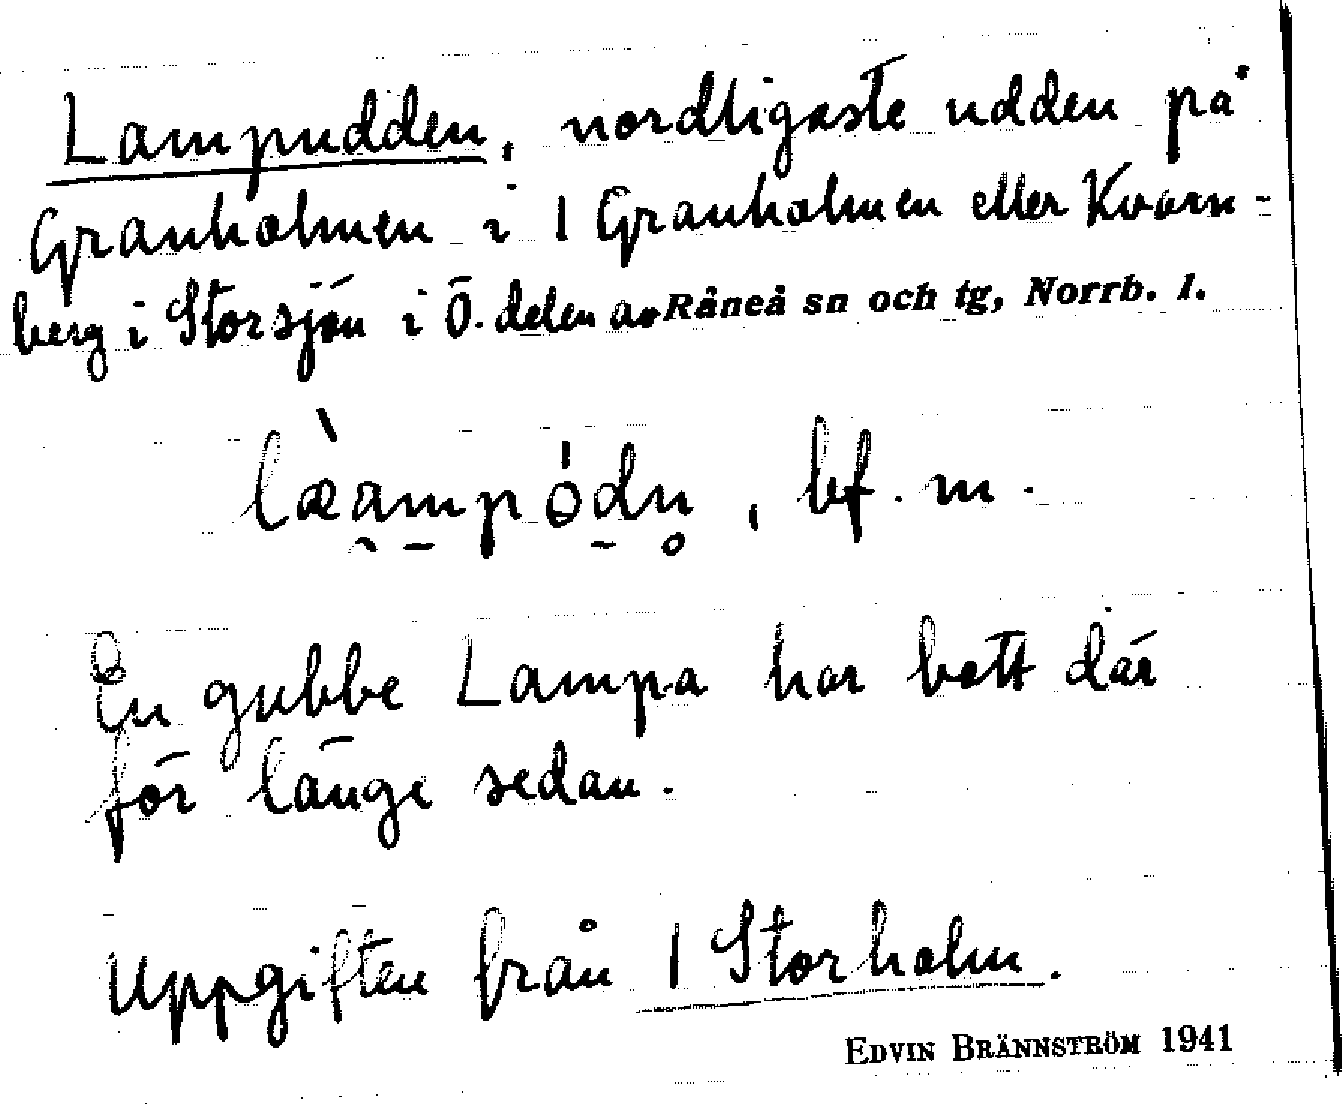 Lampudden, nordligaste udden på
Granholmen i 1 Granholmen eller Kvarn-
berg i Storsjön i Ö. delen av Råneå sn och tg, Norrb. l.
, bf. m.
En gubbe Lampa har bott där
för länge sedan.
Uppgiften från 1 Storholm.
EDVIN BRÄNNSTRÖM 1941